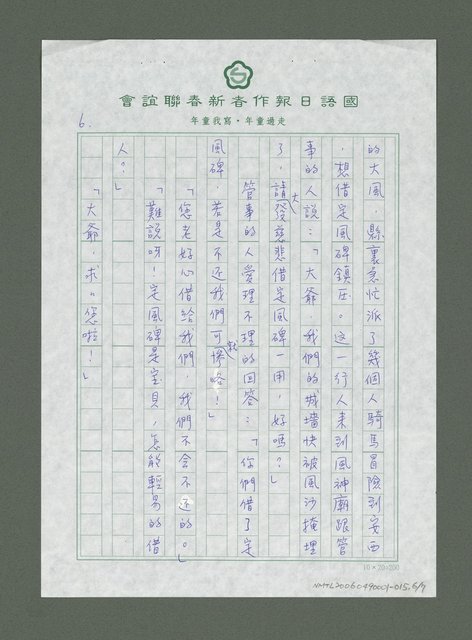 國語日報作者新春聯誼會
走過童年・寫我童年
6.
的大風,縣裏急忙派了幾個人騎馬冒險到安西
,想借定風碑鎮压。這一行人来到風神廟跟管
事的人説:「大爺,我們的城墻快被風沙掩埋
了,請大發慈悲借定風碑一用,好嗎?」
管事的人愛理不理的回答:「你們借了定
風碑,若是不还我們可就慘咯!」
「您老好心借給我們,我們不会不还的。」
「難説呀!定風碑是宝貝,怎能輕易的借
人?」
「大爺,求〃您啦!」
10×20=200
NMTL20060490001-015.6/9